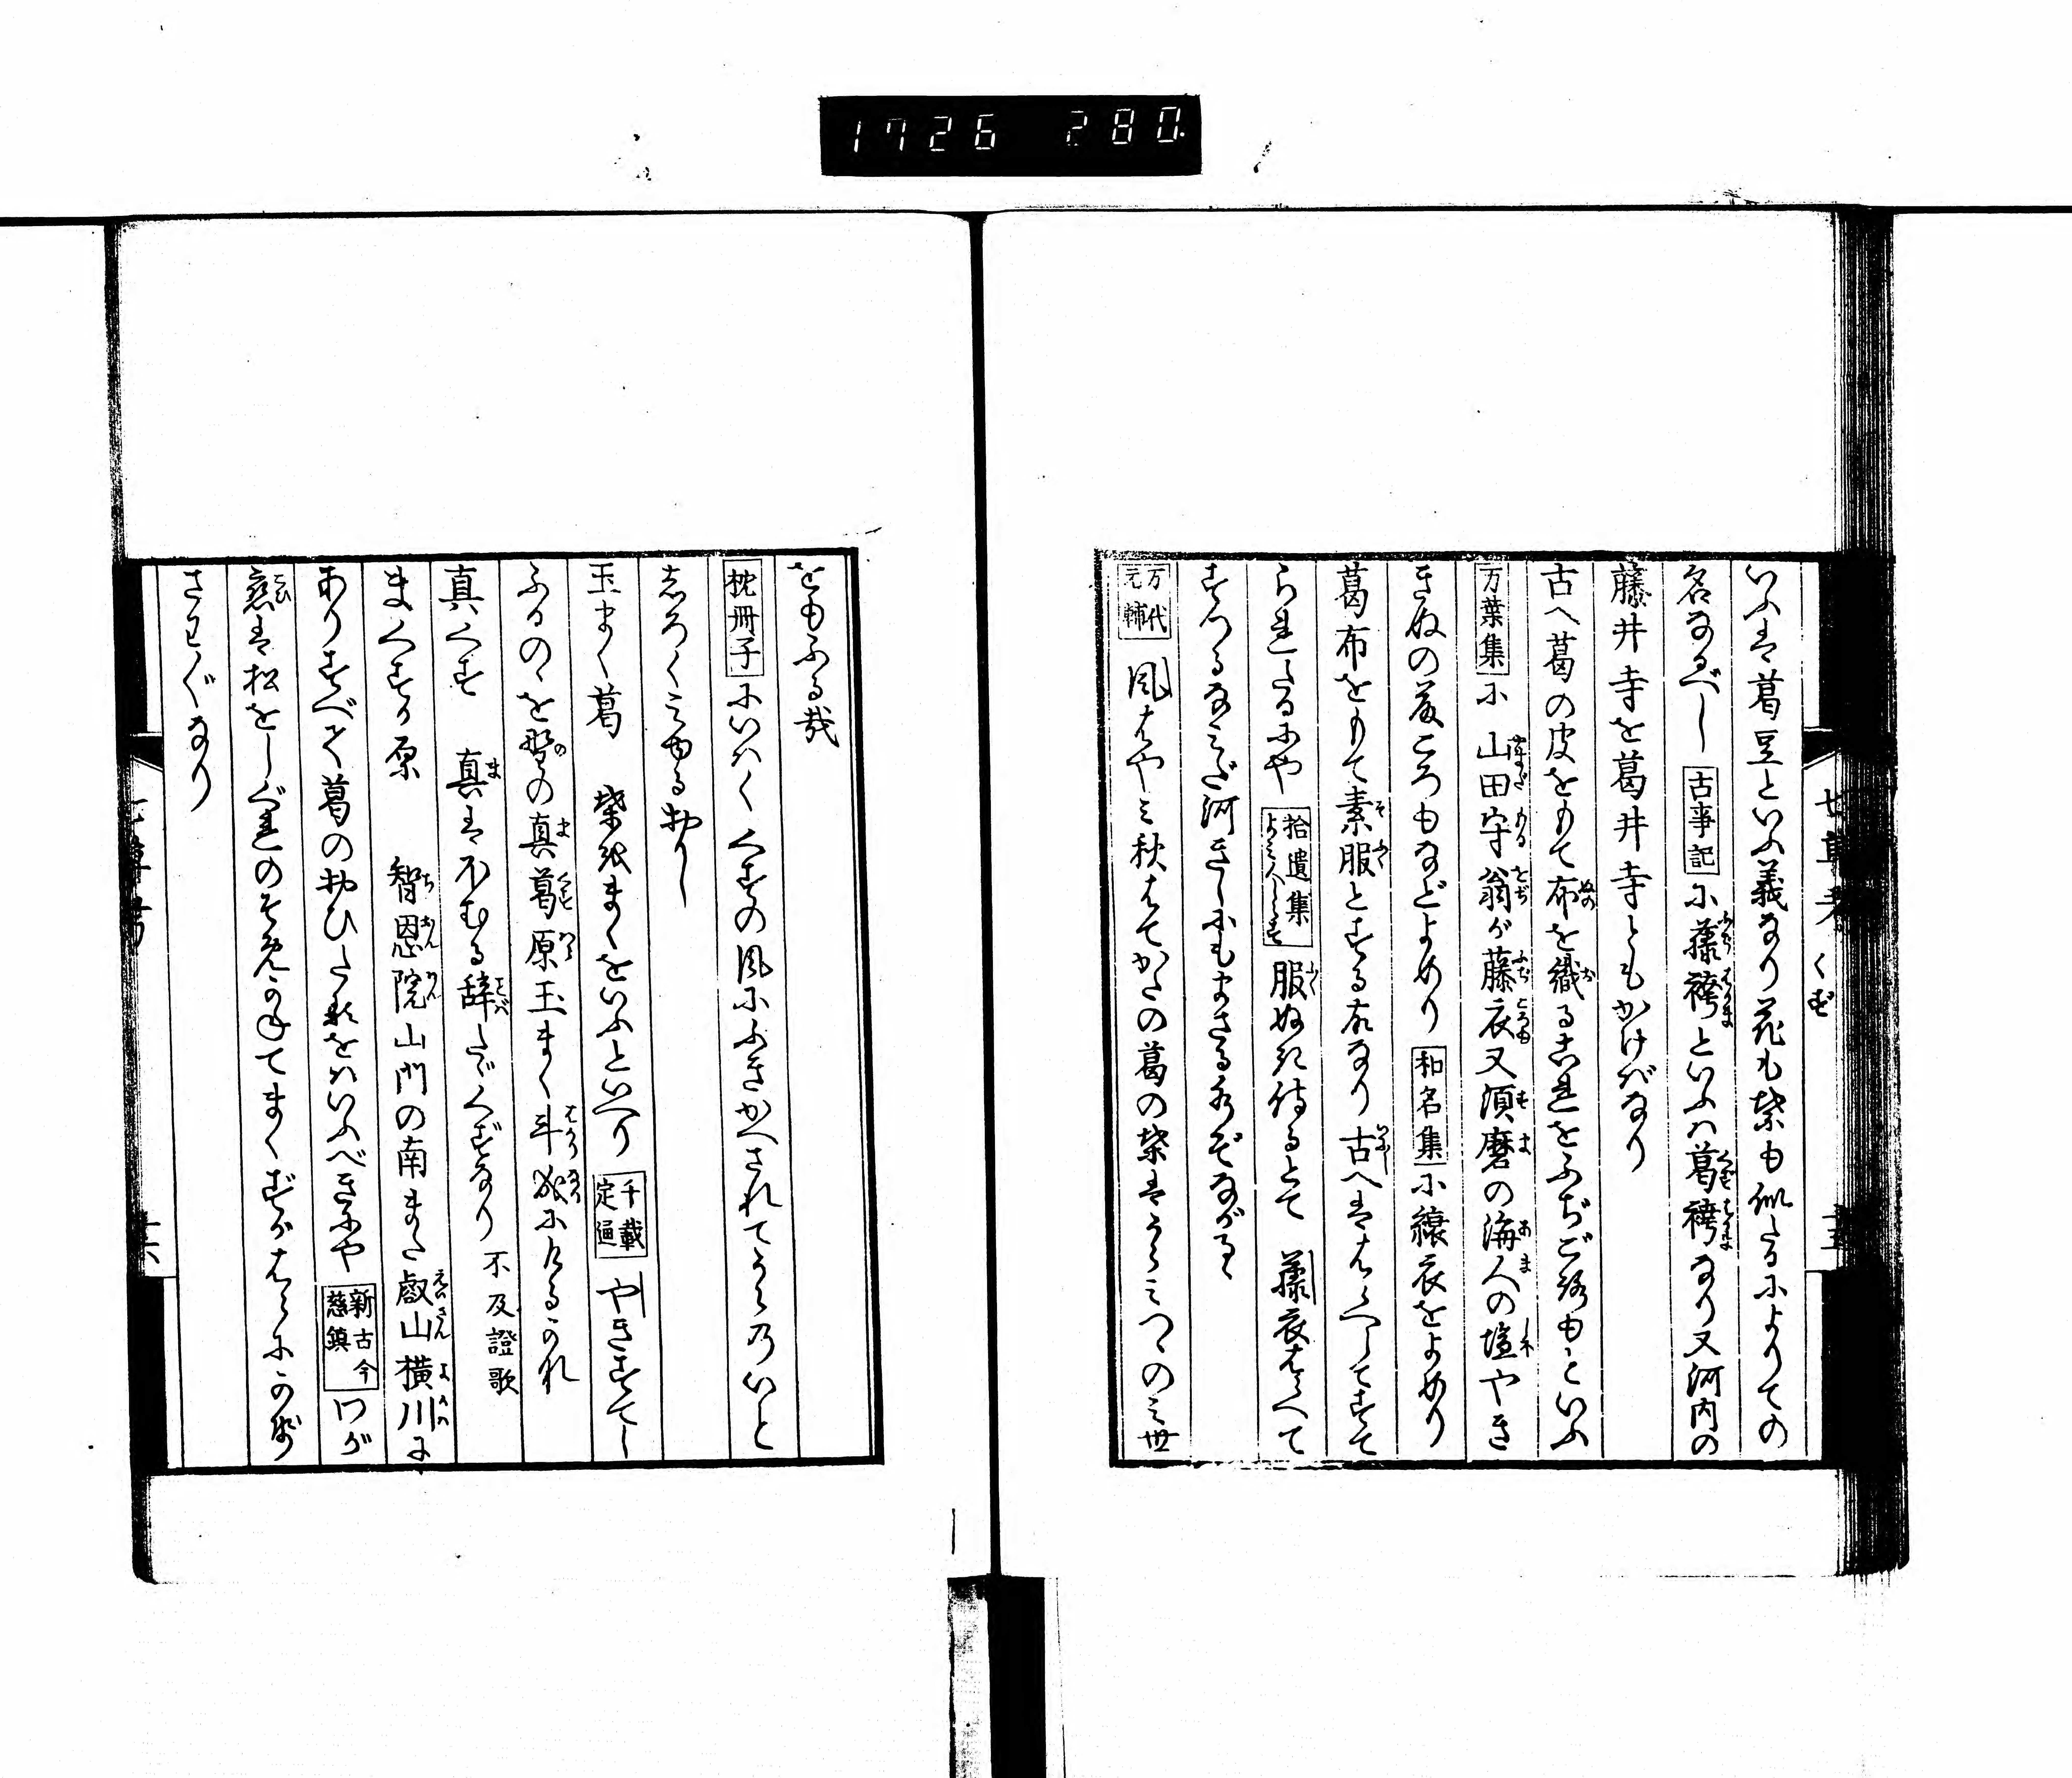 1726 280
七草考 くず 十五
いふは葛豆といふ義なり花も紫も似たるによりての
名なるべし 古事記に藤袴といふハ葛袴なり又河内の
藤井寺を葛井寺ともかけばなり
古へ葛の皮をもて布を織るこれをふぢごろもといふ
万葉集に 山田守翁が藤衣又須磨の海人の塩やき
きぬの藤ころもなどよめり 和名集に縗衣をよめり
葛布をもて素服とする故なり 古へははらへしてすて
られたるにや 拾遺集よみ人しらず 服ぬぎ侍るとて 藤衣はらへて
すつるなみだ河きしにもまさる水ぞながるゝ
万代元輔 風はやミ秋はてがたの葛の葉はうらみつゝのミ世
をもふる哉
枕冊子にいハく くずの風にふきかへされてうらのいと
しろくみゆるおかし
玉まく葛 葉をまくをいふといへり 千載定通 やきすてし
ふるのゝを野の真葛原玉まく斗成にけるかな
真くず 真はほむる辞たゞくずなり 不及證歌
まくずが原 智恩院山門の南また叡山横川に
ありすべて葛のおひたるをハいふべきにや 新古今慈鎮 わが
恋は松をしぐれのそめかねてまくずがはらに風
さわぐなり
七草考 十六